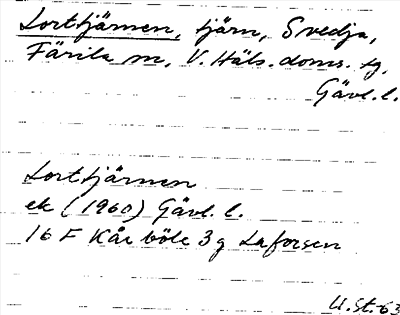 Lorttjärnen, tjärn, Svedja,
Färila sn, V. Häls. doms. tg,
Gävl. l.
Lorttjärnen
ek (1960) Gävl. l.
16 F Kårböle 3g Laforsen
U.St. 63